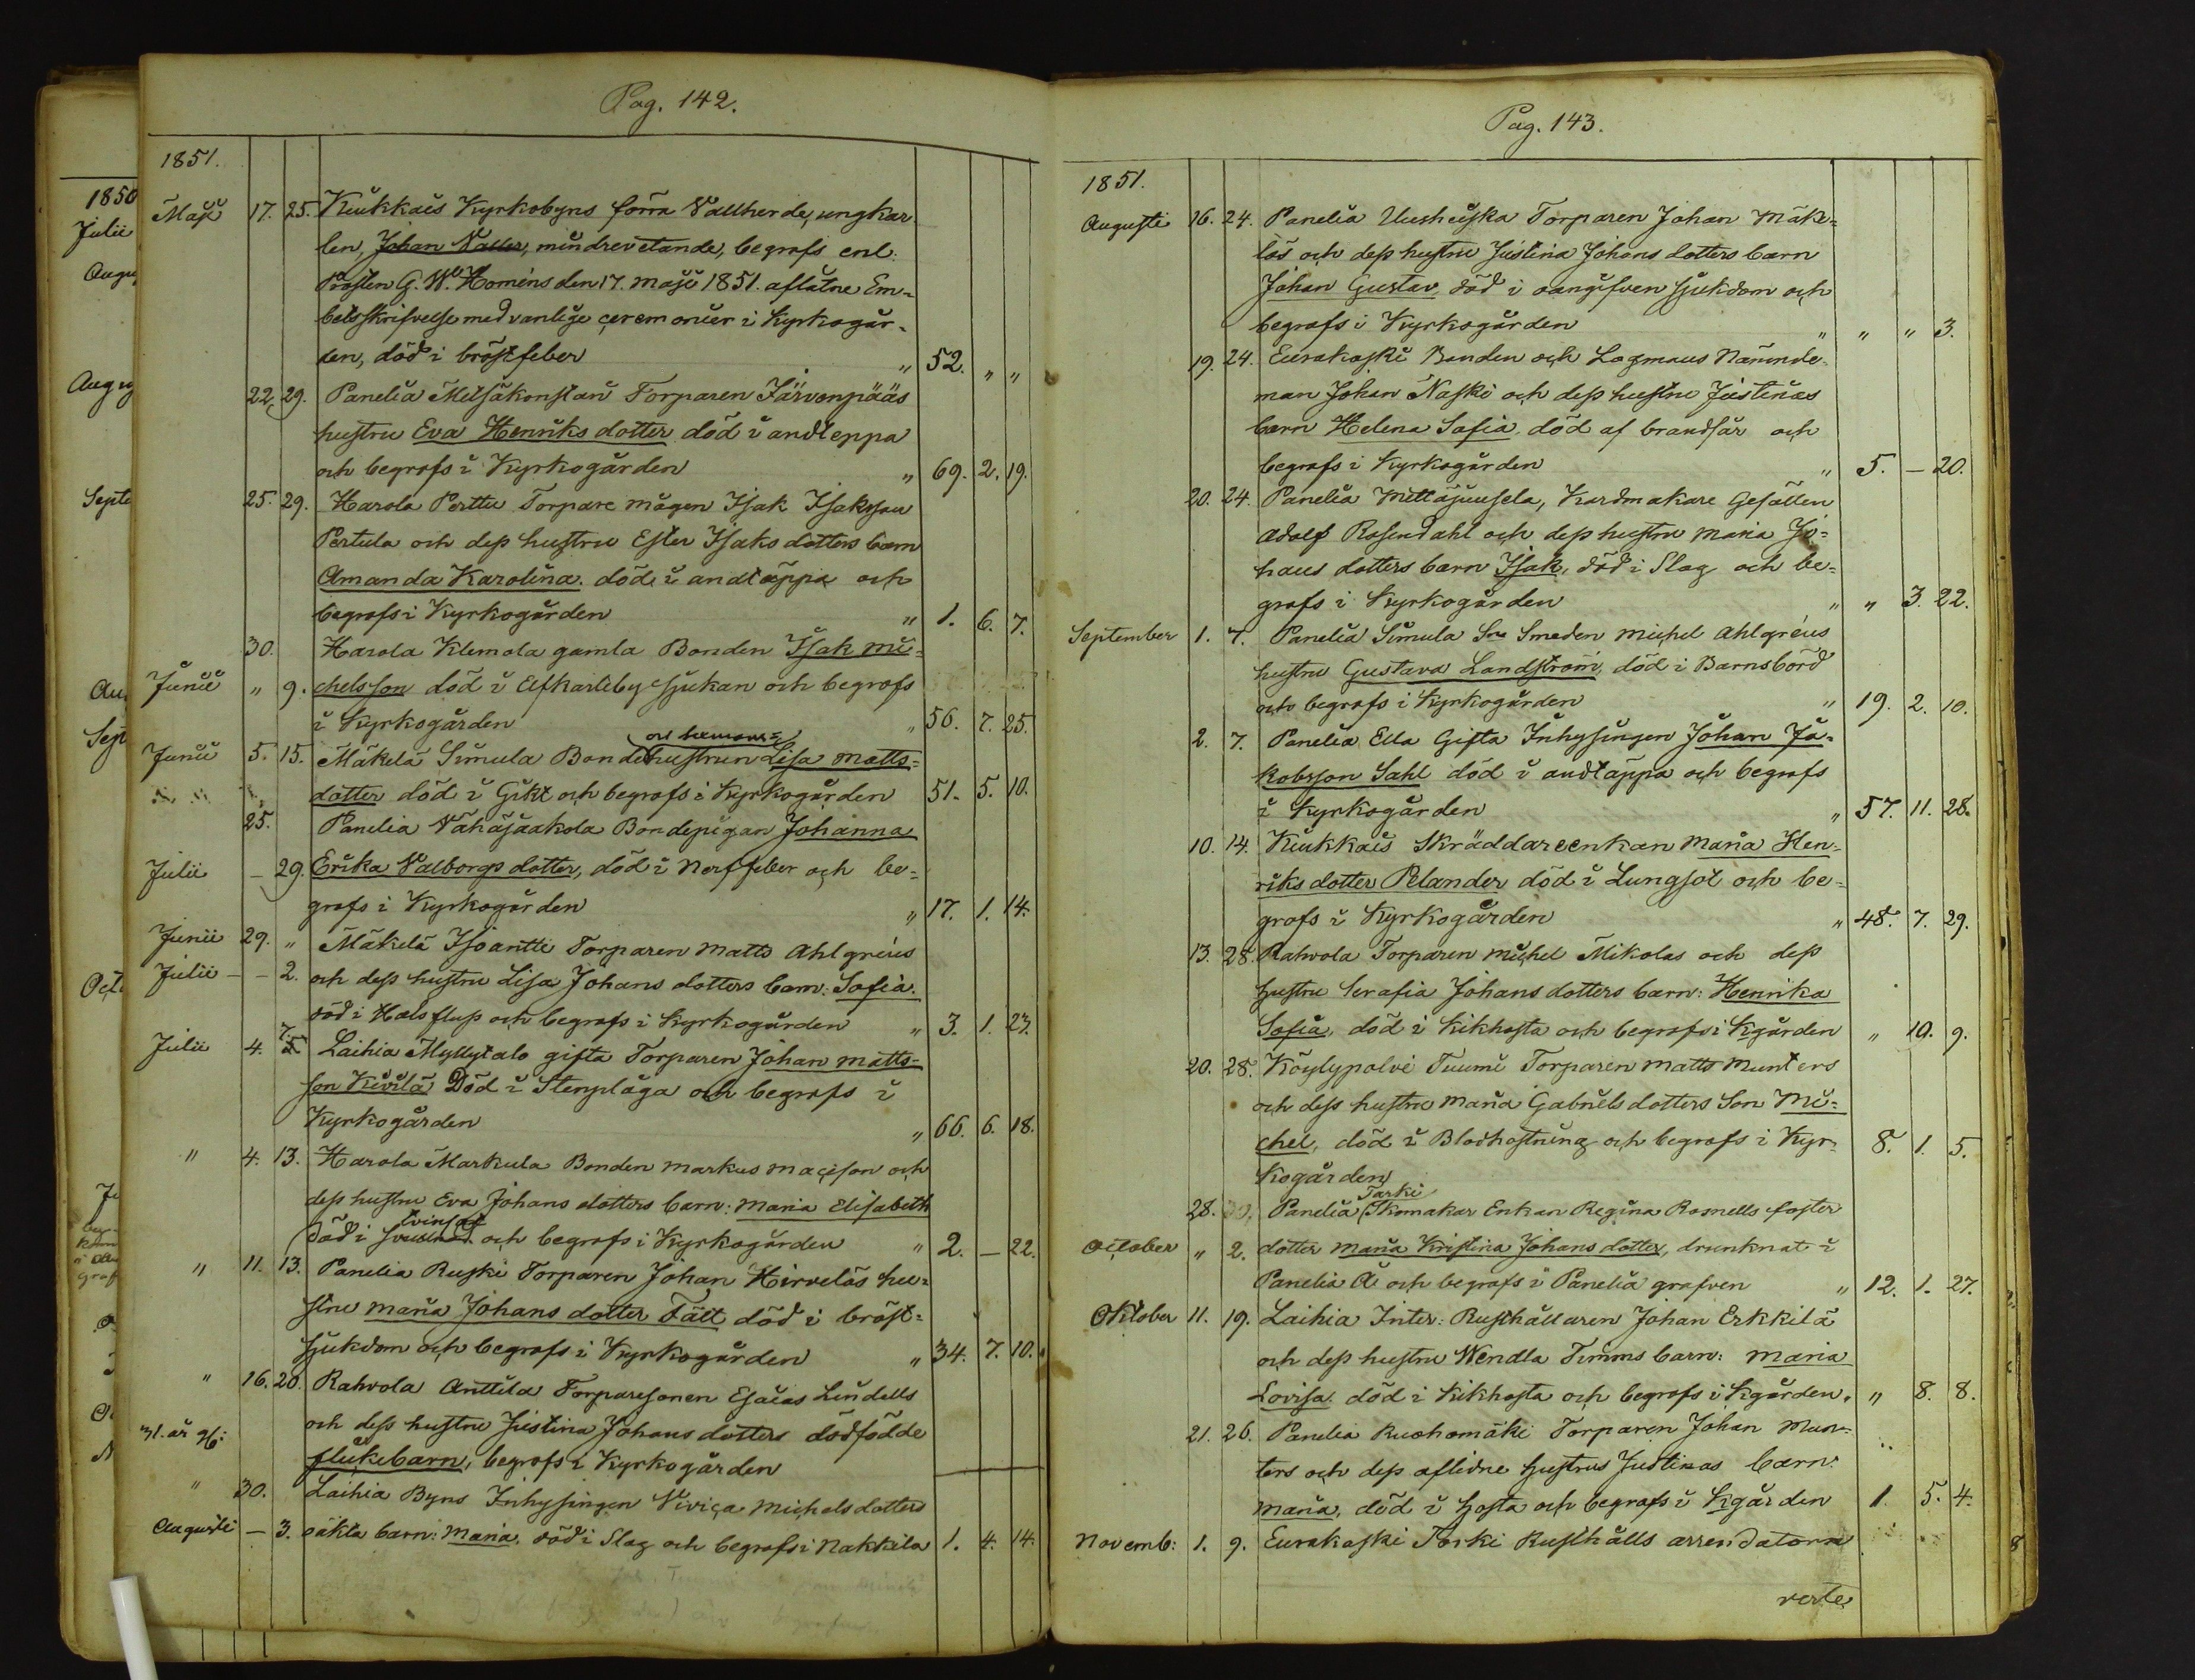 Pag. 142.
1851.
Maji 17. 25. Kiukkais Kyrkobyns förra Vallherde, ungkar
len, Johan Valler, mindrevetande, begrofs enl.
Prosten G. W. Homéns den 17. maji 1851. aflåtne Em-
betsskrifvelse med vanlige ceremonier i Kyrkogår-
den, död i bröstfeber " 52. " "
22. 29. Panelia Metsäkonstari Torparen Järvenpääs
hustru Eva Henriks dotter död i andteppa
och begrofs i Kyrkogården " 69. 2. 19.
25. 29. Harola Perttu Torpare mågen Isak Isaksson
Pertula och dess hustru Ester Isaks dotters barn
Amanda Karolina. död i andtäppa och
begrofs i Kyrkogården " 1. 6. 7.
30. Harola Klemola gamla Bonden Isak Mi-
Junii " 9. chelsson död i Elfkarleby sjukan och begrofs
i Kyrkogården " 56. 7. 25.
Junii 5. 15. Mäkelä Simula Bonde hustrun Lisa Matts-
dotter död i Gikt och begrofs i Kyrkogården 51. 5. 10.
25. Panelia Vähäjaakola Bondepigan Johanna
Julii – 29. Erika Valborgs dotter, död i Nerffeber och be-
grofs i Kyrkogården " 17. 1. 14.
Junii 29. " Mäkelä Isoantti Torparen Matts Ahlgréns
Julii – – 2. och dess hustru Lisa Johans dotters barn: Sofia.
död i Halsfluss och begrofs i Kyrkogården " 3. 1. 23.
Julii 4. 7. Laihia Myllytalo gifta Torparen Johan Matts-
son Kivilä Död i Stenplåga och begrofs i
Kyrkogården " 66. 6. 18.
" 4. 13. Harola Markula Bonden Markus Maçison och
dess hustru Eva Johans dotters barn: Maria Elisabeth
död i tvinsot och begrofs i Kyrkogården " 2. – 22.
" 11. 13. Panelia Ruski Torparen Johan Hirveläs hu-
stru Maria Johans dotter Fält död i bröst-
sjukdom och begrofs i Kyrkogården " 34. 7. 10.
" 16. 20. Rahvola Anttila Torparesonen Esaias Lindells
31. år g/: och dess hustru Justina Johans dotters dödfödde
flickebarn, begrofs i Kyrkogården
" 30. Laihia Byns Inhysingen Viviça Michelsdotters
Augusti – 3. oäkta barn: Maria. död i Slag och begrofs i Nakkila 1. 4. 14.
1850
Julii
Augu
Augu
Septe
Au
Sep
Octo
Pag. 143.
1851.
Augusti 16. 24. Panelia Uusheiska Torparen Johan Mäke-
läs och dess hustru Justina Johans dotters barn
Johan Gustav död i oangifven sjukdom och
begrofs i Kyrkogården " " " 3.
19. 24. Eurakoski Bonden och Lagmans Nämnde-
man Johan Naski och dess hustru Justinas
barn Helena Sofia, död af brandsår och
begrofs i Kyrkogården " 5. – 20.
20. 24. Panelia Mittäjuusela, Kardmakare Gesällen
Adolf Rosendahl och dess hustru Maria Jo-
hans dotters barn Isak, död i Slag och be-
grofs i Kyrkogården " " 3. 22.
September 1. 7. Panelia Simula Smeden Michel Ahlgréns
hustru Gustava Landström, död i Barnsbörd
och begrofs i Kyrkogården " 19. 2. 10.
2. 7. Panelia Ella Gifta Inhysingen Johan Ja-
kobsson Sahl död i andtäppa och begrofs
i Kyrkogården " 57. 11. 28.
10. 14. Kiukkais Skräddareenkan Maria Hen-
riks dotter Pelander död i Lungsot och be-
grofs i Kyrkogården " 48. 7. 29.
13. 28. Rahvola Torparen Michel Mikolas och dess
hustru Serafia Johans dotters barn: Henrika
Sofia, död i Kikhosta och begrofs i Kgården " 10. 9.
20. 28. Köylypolvi Tuumi Torparen Matts Munters
och dess hustru Maria Gabriels dotters Son Mi-
chel, död i Blodhostning och begrofs i Kyr- 8. 1. 5.
kogården
28. Panelia Tarki Skomakar Enkan Regina Rosnells foster
October " 2. dotter Maria Kristina Johans dotter, drunknat i
Panelia Å och begrofs i Panelia grafven " 12. 1. 27.
Oktober 11. 19. Laihia Inter: Rusthållaren Johan Erkkilä
och dess hustru Wendla Timms barn: Maria
Lovisa. död i Kikhosta och begrofs i Kgården " " 8. 8.
21. 26. Panelia Ruohomäki Torparen Johan Mun-
ters och dess aflidne hustrus Justinas barn
Maria, död i Hosta och begrofs i Kgården 1. 5. 4.
Novemb: 1. 9. Eurakoski Torki Rusthålls arrendatorn
verte